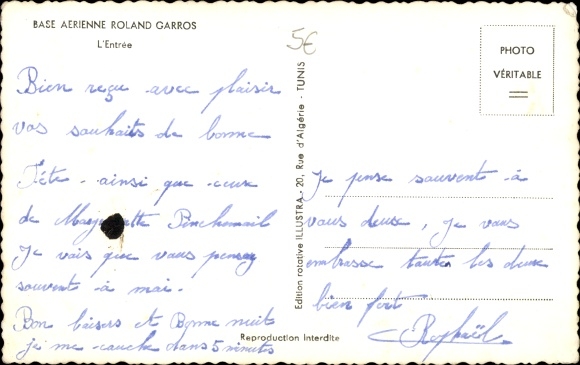 BASE AERIENNE ROLAND GARROS
L'Entrée
5€
PHOTO
VÉRITABLE
Bien reçu avec plaisir
vos souhaits de bonne
fête - ainsi que ceux
de Marguerite Pinchemail
Je vois que vous pensez
souvent à moi.
Bon baisers et Bonne nuit
je me couche dans 5 minutes
Edition rotative ILLUSTRA - 20, Rue d'Algérie - TUNIS
Je pense souvent à
vous deux, je vous
embrasse toutes les deux
bien fort
Raphaël
Reproduction Interdite